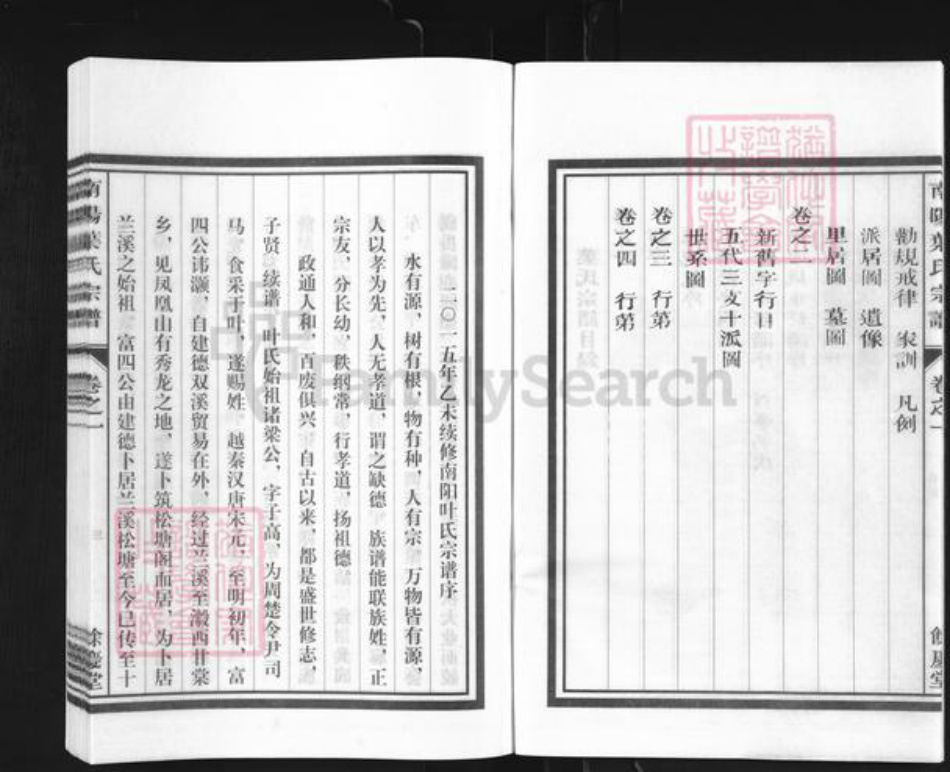 勸規戒律　家訓　凡例
派居圖　遺像
里居圖　墓圖
卷之二
新舊字行目
五代三支十派圖
世系圖
卷之三　行第
卷之四　行第
二〇一五年乙未续修南阳叶氏宗谱序
水有源，树有根，物有种，人有宗，万物皆有源，
人以孝为先，人无孝道，谓之缺德，族谱能联族姓，正
宗友，分长幼，秩纲常，行孝道，扬祖德
政通人和，百废俱兴，自古以来，都是盛世修志，
子贤　续谱　叶氏始祖诸梁公，字子高，为周楚令尹司
马，食采于叶，遂赐姓　越秦汉唐宋元，至明初年，富
四公讳灏，自建德双溪贸易在外，经过兰溪至濲西甘棠
乡，见凤凰山有秀龙之地，遂卜筑松塘阁而居，为卜居
兰溪之始祖　富四公由建德卜居兰溪松塘至今已传至十
南陽葉氏宗譜　卷之一　三　餘慶堂
FamilySearch